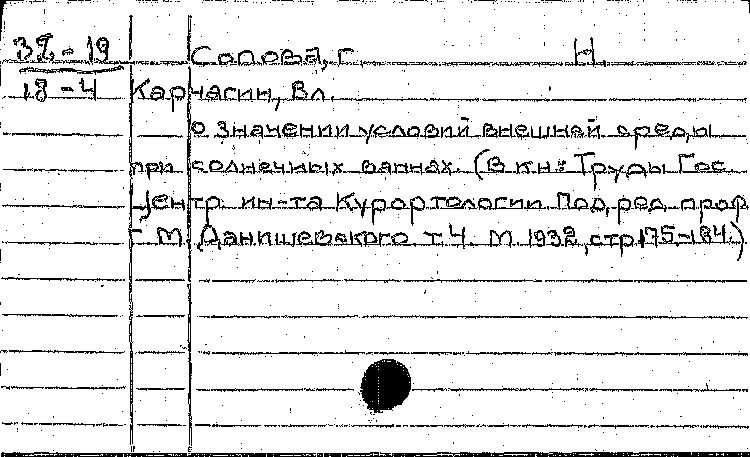 32-19 Сопова, Г. Н.
18-4 Карчасин, Вл.
О значении условий внешней среды
при солнечных ваннах. (В кн: Труды Гос.
Центр. ин-та Курортологии. Под ред. проф
Г. М. Данишевского т. 4. М. 1932, стр. 175-184.)